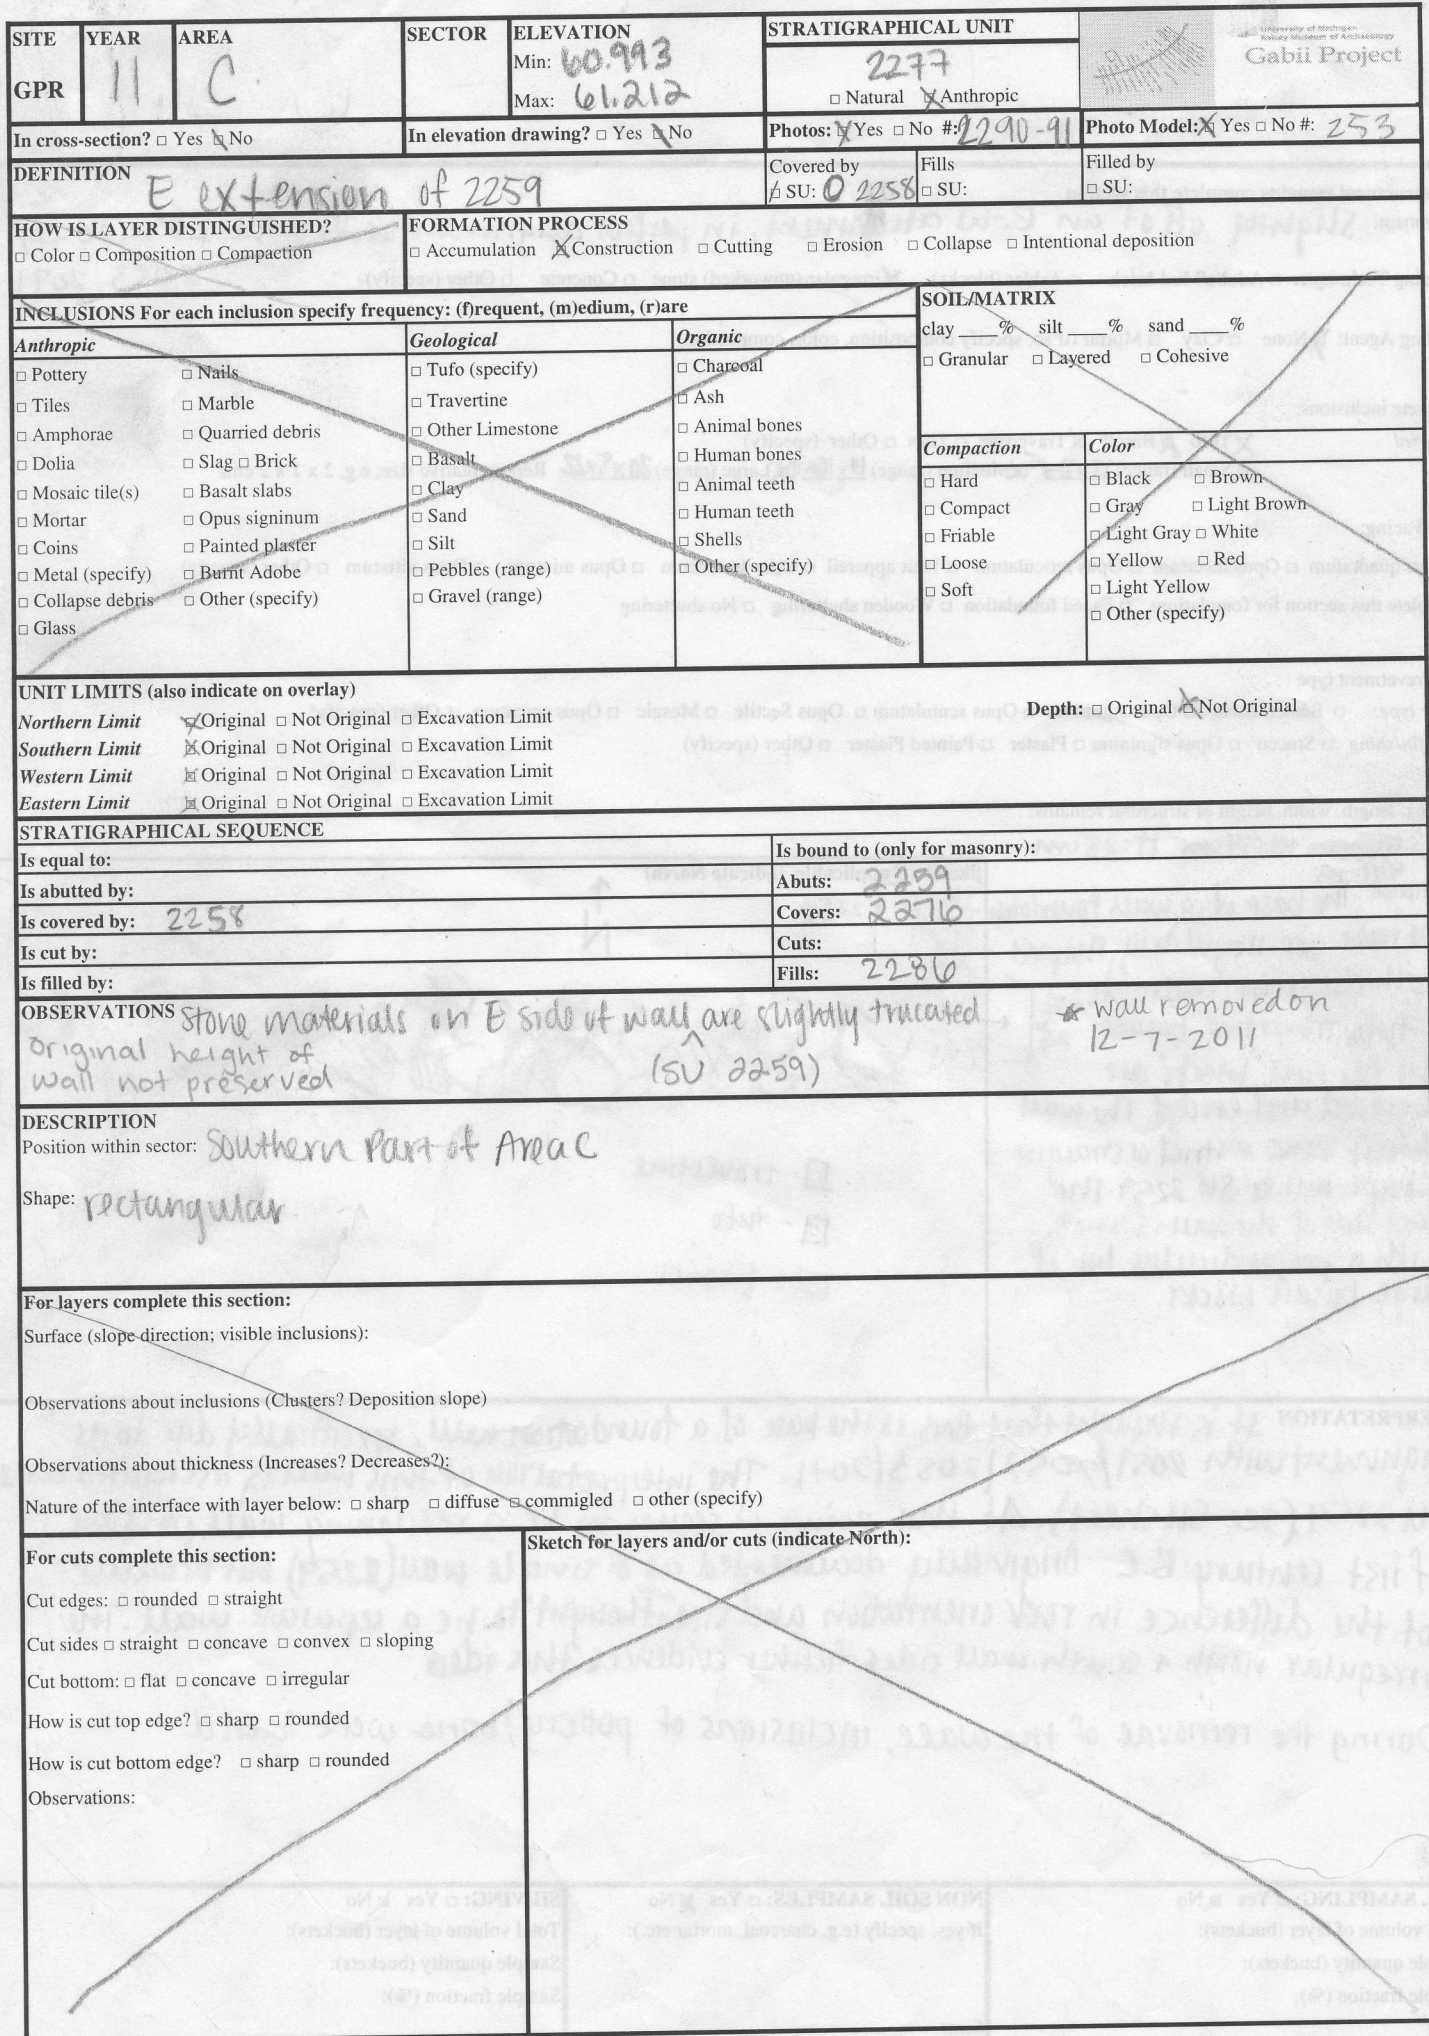 SITE YEAR AREA SECTOR ELEVATION STRATIGRAPHICAL UNIT
GPR 11 C Min: 60.993 2277
Max: 61.212 □ Natural ☒ Anthropic
University of Michigan
Kelsey Museum of Archaeology
Gabii Project
In cross-section? □ Yes ☒ No In elevation drawing? □ Yes ☒ No Photos: ☒ Yes □ No #: 2290-91 Photo Model: ☒ Yes □ No #: 253
DEFINITION E extension of 2259
Covered by
☒ SU: 2258
Fills
□ SU:
Filled by
□ SU:
HOW IS LAYER DISTINGUISHED?
□ Color □ Composition □ Compaction
FORMATION PROCESS
□ Accumulation ☒ Construction □ Cutting □ Erosion □ Collapse □ Intentional deposition
INCLUSIONS For each inclusion specify frequency: (f)requent, (m)edium, (r)are
Anthropic
□ Pottery □ Nails
□ Tiles □ Marble
□ Amphorae □ Quarried debris
□ Dolia □ Slag □ Brick
□ Mosaic tile(s) □ Basalt slabs
□ Mortar □ Opus signinum
□ Coins □ Painted plaster
□ Metal (specify) □ Burnt Adobe
□ Collapse debris □ Other (specify)
□ Glass
Geological
□ Tufo (specify)
□ Travertine
□ Other Limestone
□ Basalt
□ Clay
□ Sand
□ Silt
□ Pebbles (range)
□ Gravel (range)
Organic
□ Charcoal
□ Ash
□ Animal bones
□ Human bones
□ Animal teeth
□ Human teeth
□ Shells
□ Other (specify)
SOIL/MATRIX
clay ____% silt ____% sand ____%
□ Granular □ Layered □ Cohesive
Compaction
□ Hard
□ Compact
□ Friable
□ Loose
□ Soft
Color
□ Black □ Brown
□ Gray □ Light Brown
□ Light Gray □ White
□ Yellow □ Red
□ Light Yellow
□ Other (specify)
UNIT LIMITS (also indicate on overlay)
Northern Limit ☒ Original □ Not Original □ Excavation Limit Depth: □ Original ☒ Not Original
Southern Limit ☒ Original □ Not Original □ Excavation Limit
Western Limit ☒ Original □ Not Original □ Excavation Limit
Eastern Limit ☒ Original □ Not Original □ Excavation Limit
STRATIGRAPHICAL SEQUENCE
Is equal to: Is bound to (only for masonry):
Is abutted by: Abuts: 2259
Is covered by: 2258 Covers: 2276
Is cut by: Cuts:
Is filled by: Fills: 2286
OBSERVATIONS Stone materials on E side of wall (SU 2259) are slightly trucated
Original height of
wall not preserved
* wall removed on
12-7-2011
DESCRIPTION
Position within sector: Southern Part of Area C
Shape: rectangular
For layers complete this section:
Surface (slope direction; visible inclusions):
Observations about inclusions (Clusters? Deposition slope)
Observations about thickness (Increases? Decreases?):
Nature of the interface with layer below: □ sharp □ diffuse □ commigled □ other (specify)
For cuts complete this section:
Cut edges: □ rounded □ straight
Cut sides □ straight □ concave □ convex □ sloping
Cut bottom: □ flat □ concave □ irregular
How is cut top edge? □ sharp □ rounded
How is cut bottom edge? □ sharp □ rounded
Observations:
Sketch for layers and/or cuts (indicate North):